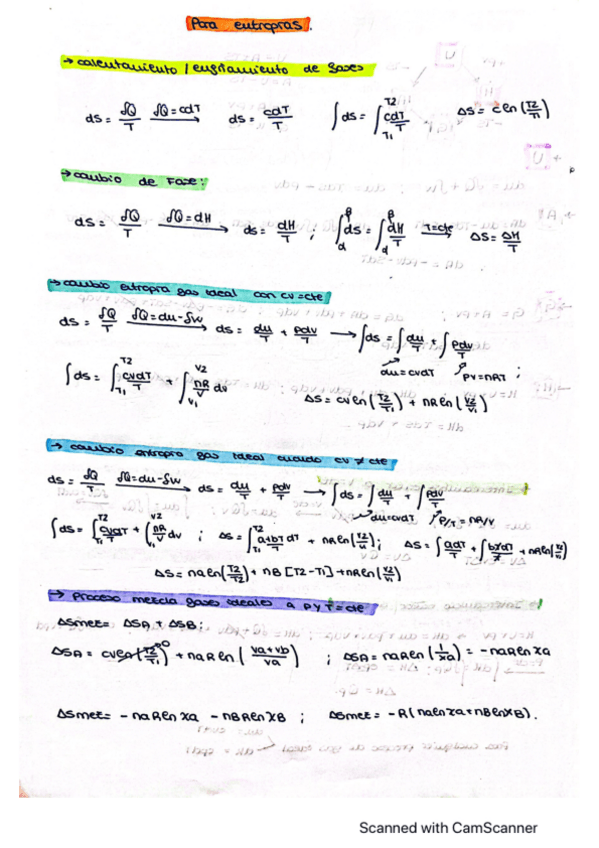 Para entropías.
→ calentamiento / enfriamiento de gases
dS = δQ/T δQ=cdT → dS = cdT/T ∫dS = ∫T1^T2 cdT/T ΔS = c ln(T2/T1)
→ cambio de Fase:
dS = δQ/T δQ=dH → dS = dH/T ; ∫α^β dS = ∫α^β dH/T T=cte → ΔS = ΔH/T
→ cambio entropía gas ideal con cv=cte
dS = δQ/T δQ=du-δw → dS = du/T + pdv/T → ∫dS = ∫du/T + ∫pdv/T
du=cvdT PV=nRT ;
∫dS = ∫T1^T2 cvdT/T + ∫V1^V2 nR/V dv ΔS = cv ln(T2/T1) + nR ln(V2/V1)
→ cambio entropía gas ideal cuando cv ≠ cte
dS = δQ/T δQ=du-δw → dS = du/T + pdv/T → ∫dS = ∫du/T + ∫pdv/T
du=cvdT P/T = nR/V
∫dS = ∫T1^T2 cvdT/T + ∫V1^V2 nR/V dv ; ΔS = ∫T1^T2 a+bT/T dT + nR ln(V2/V1) ; ΔS = ∫adT/T + ∫bTdT/T + nR ln(V2/V1)
ΔS = na ln(T2/T2) + nB [T2-T1] + nR ln(V2/V1)
→ Proceso mezcla gases ideales a P y T = cte
ΔSmez = ΔSA + ΔSB ;
ΔSA = cv ln(T2/T1)→0 + naR ln(va+vb/va) ; ΔSA = naR ln(1/xa) = -naR ln xa
ΔSmez = -naR ln xa - nBR ln xB ; ΔSmez = -R(na ln xa + nB ln xB).
Scanned with CamScanner